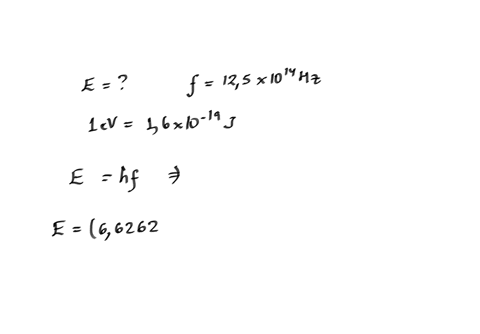 E = ? f = 12,5 × 10¹⁴ Hz
1 eV = 1,6 × 10⁻¹⁹ J
E = hf ⇒
E = (6,6262